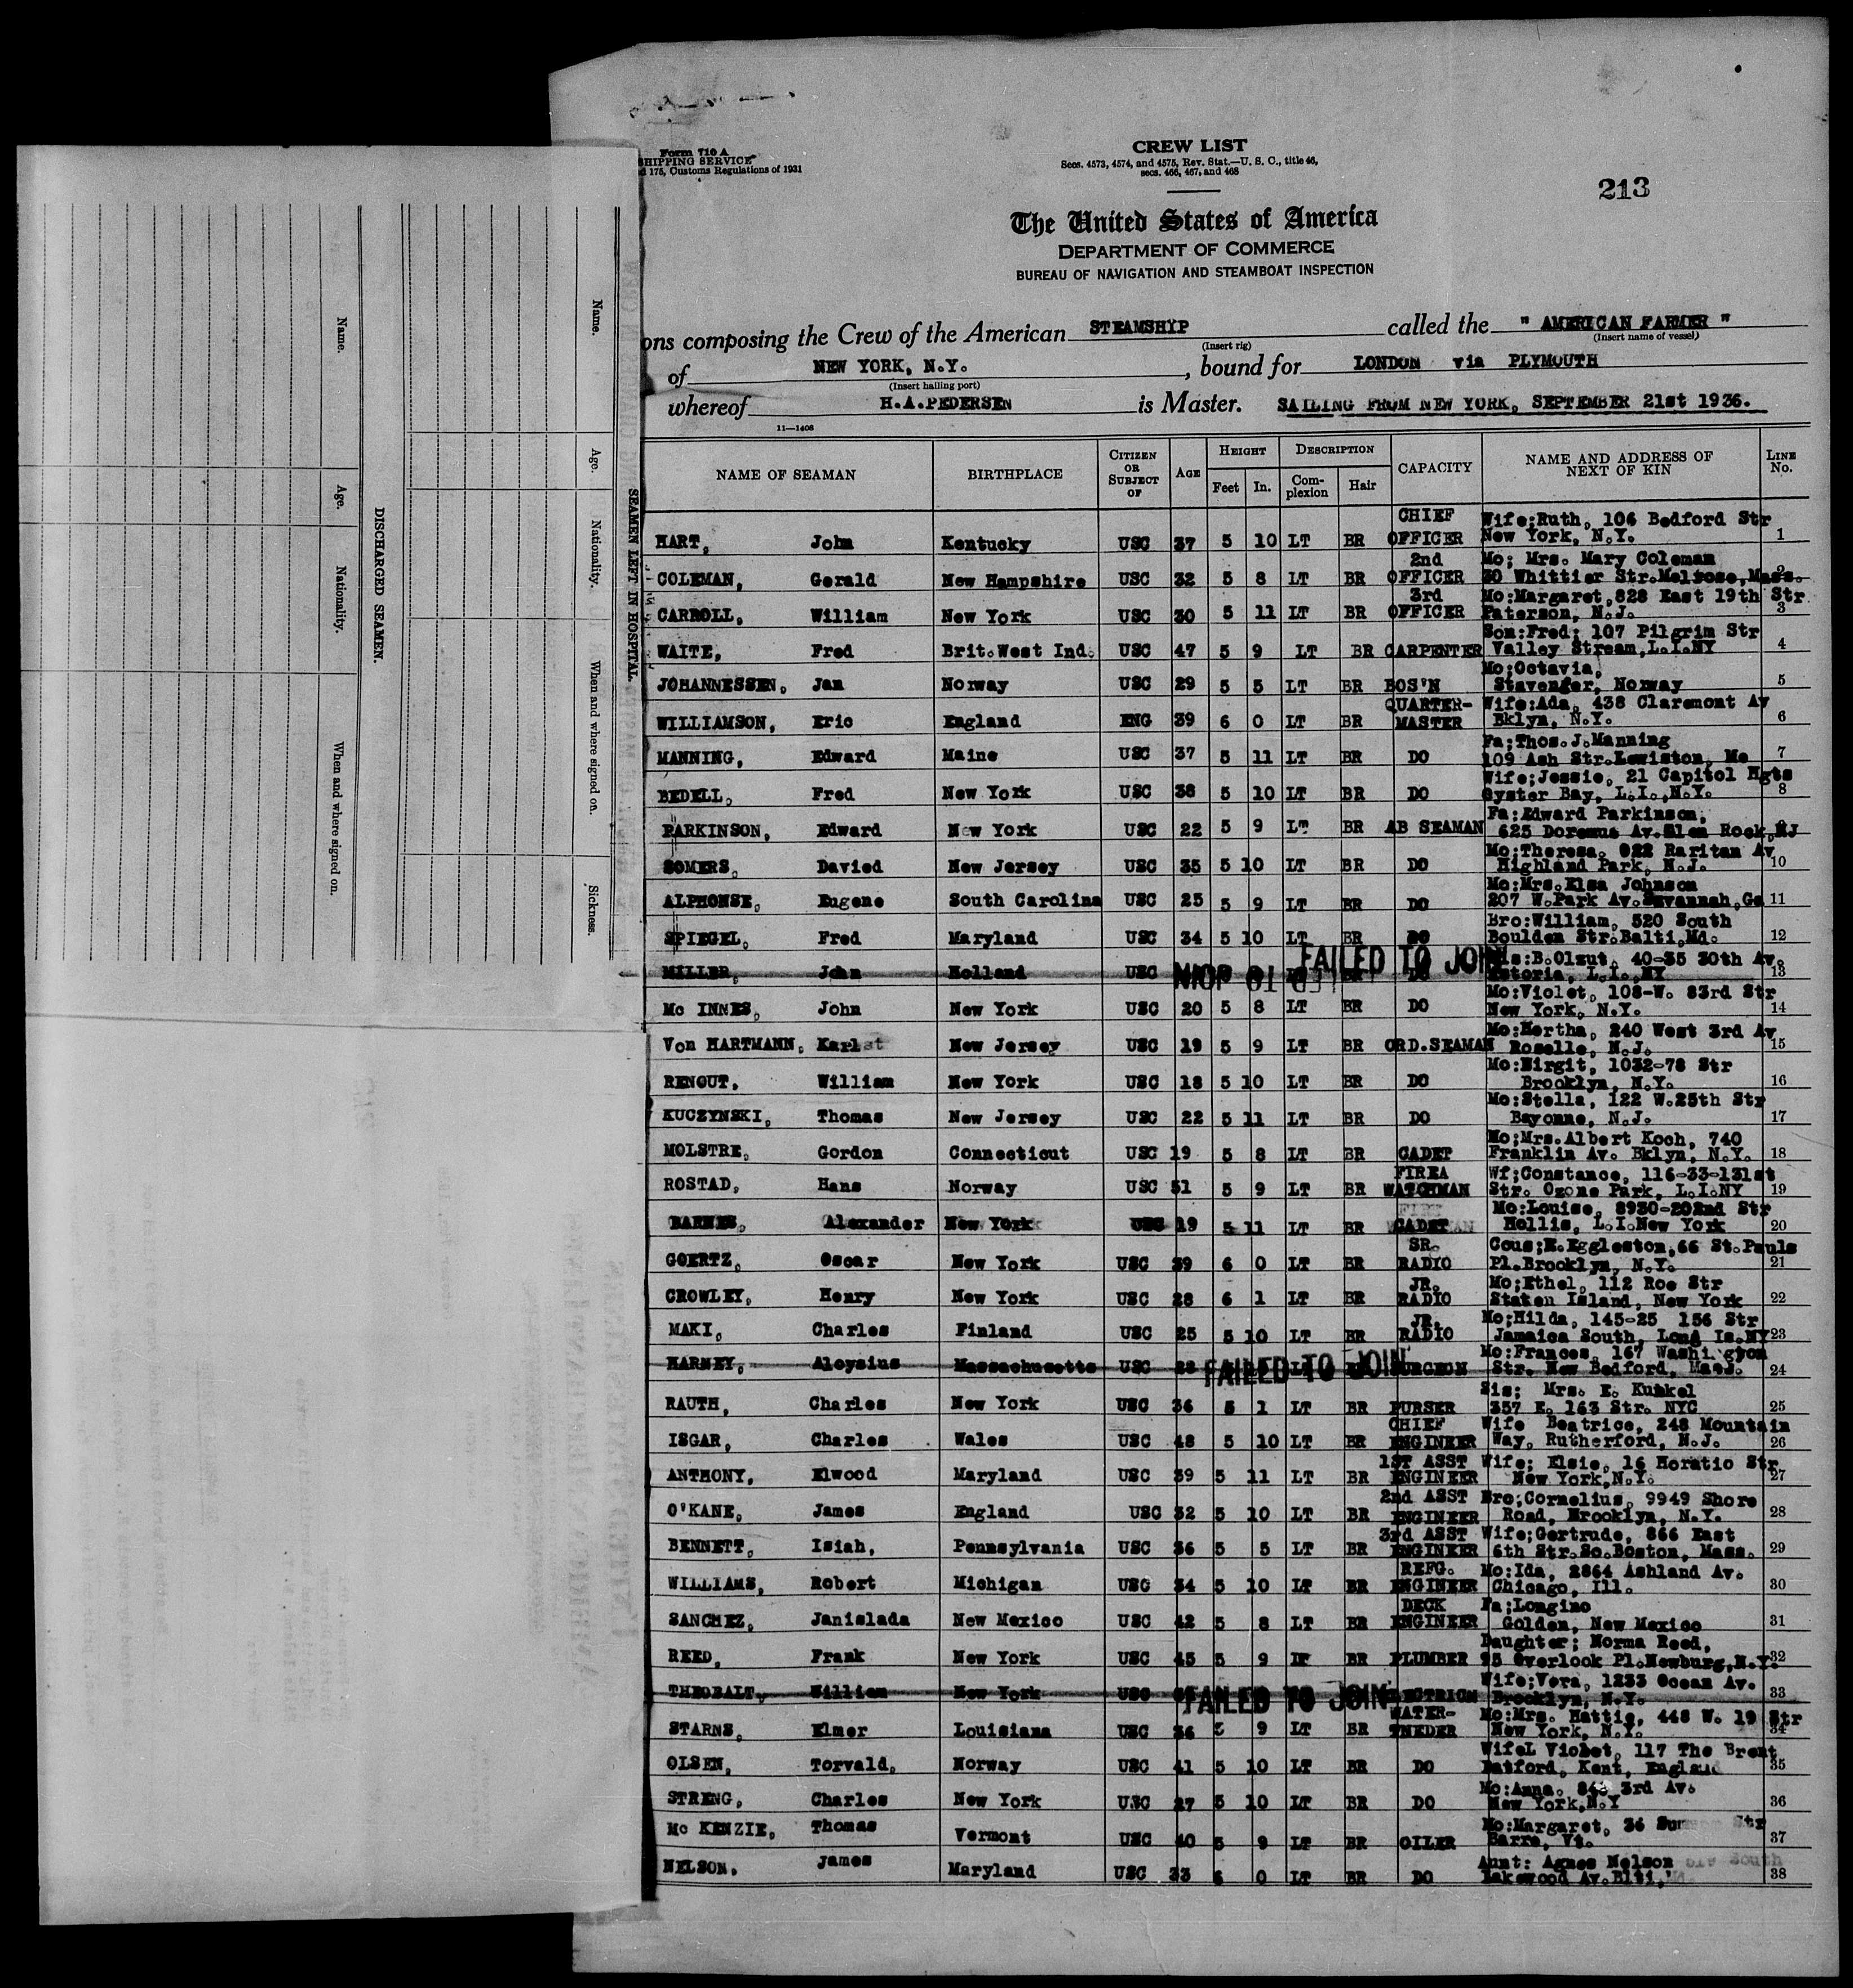 Form 710 A
SHIPPING SERVICE
175, Customs Regulations of 1931
CREW LIST
Secs. 4573, 4574, and 4575, Rev. Stat.—U. S. C., title 46,
secs. 466, 467, and 468
213
The United States of America
DEPARTMENT OF COMMERCE
BUREAU OF NAVIGATION AND STEAMBOAT INSPECTION
ons composing the Crew of the American STEAMSHYP called the " AMERICAN FARMER "
(Insert rig) (Insert name of vessel)
of NEW YORK, N.Y. , bound for LONDON via PLYMOUTH
(Insert hailing port)
whereof H.A.PEDERSEN is Master. SAILING FROM NEW YORK, SEPTEMBER 21st 1936.
11—1408
NAME OF SEAMAN BIRTHPLACE CITIZEN OR SUBJECT OF AGE HEIGHT Feet In. DESCRIPTION Complexion Hair CAPACITY NAME AND ADDRESS OF NEXT OF KIN LINE No.
CHIEF Wife;Ruth, 106 Bedford Str
HART, John Kentucky USC 37 5 10 LT BR OFFICER New York, N.Y. 1
2nd Mo; Mrs. Mary Coleman
COLEMAN, Gerald New Hampshire USC 32 5 8 LT BR OFFICER 30 Whittier Str.Melrose,Mass. 2
3rd Mo:Margaret,828 East 19th Str
CARROLL, William New York USC 30 5 11 LT BR OFFICER Paterson, N.J. 3
Son:Fred; 107 Pilgrim Str
WAITE, Fred Brit.West Ind. USC 47 5 9 LT BR CARPENTER Valley Stream,L.I.NY 4
Mo;Octavia,
JOHANNESSEN, Jan Norway USC 29 5 5 LT BR BOS'N Stavenger, Norway 5
QUARTER- Wife:Ada, 438 Claremont Av
WILLIAMSON, Eric England ENG 39 6 0 LT BR MASTER Bklyn, N.Y. 6
Fa;Thos.J.Manning
MANNING, Edward Maine USC 37 5 11 LT BR DO 109 Ash Str.Lewiston, Me 7
Wife;Jessie, 21 Capitol Hgts
BEDELL, Fred New York USC 38 5 10 LT BR DO Oyster Bay, L.I.,N.Y. 8
Fa;Edward Parkinson,
PARKINSON, Edward New York USC 22 5 9 LT BR AB SEAMAN 625 Doremus Av.Glen Rock,NJ 9
Mo:Theresa, 922 Raritan Av
SOMERS, Davied New Jersey USC 35 5 10 LT BR DO Highland Park, N.J. 10
Mo:Mrs.Elsa Johnson
ALPHONSE, Eugene South Carolina USC 25 5 9 LT BR DO 207 W.Park Av.Savannah,Ga 11
Bro:William, 520 South
SPIEGEL, Fred Maryland USC 34 5 10 LT BR DO Bouldon Str.Balti,Md. 12
FAILED TO JOIN Sis:B.Olzut, 40-35 30th Av.
MILLER, John Holland USC TO JOIN Astoria, L.I.,NY 13
Mo:Violet, 108-W. 83rd Str
Mc INNES, John New York USC 20 5 8 LT BR DO New York, N.Y. 14
Mo:Hertha, 240 West 3rd Av
Von HARTMANN, Karl New Jersey USC 19 5 9 LT BR ORD.SEAMAN Roselle, N.J. 15
Mo:Birgit, 1032-78 Str
RENOUT, William New York USC 18 5 10 LT BR DO Brooklyn, N.Y. 16
Mo:Stella, 122 W.25th Str
KUCZYNSKI, Thomas New Jersey USC 22 5 11 LT BR DO Bayonne, N.J. 17
Mo;Mrs.Albert Koch, 740
MOLSTRE, Gordon Connecticut USC 19 5 8 LT BR CADET Franklin Av. Bklyn, N.Y. 18
FIREA Wf;Constance, 116-33-131st
ROSTAD, Hans Norway USC 51 5 9 LT BR WATCHMAN Str. Ozone Park, L.I.NY 19
Mo:Louise, 8930-202nd Str
BARNES, Alexander New York USC 19 5 11 LT BR CADET Hollis, L.I.New York 20
SR. Cous;E.Eggleston,66 St.Pauls
GOERTZ, Oscar New York USC 39 6 0 LT BR RADIO Pl.Brooklyn, N.Y. 21
JR. Mo;Ethel, 112 Roe Str
CROWLEY, Henry New York USC 28 6 1 LT BR RADIO Staten Island, New York 22
JR. Mo;Hilda, 145-25 156 Str
MAKI, Charles Finland USC 25 5 10 LT BR RADIO Jamaica South, Long Is.NY 23
Mo:Frances, 167 Washington
HARNEY, Aloysius Massachusetts USC 28 FAILED TO JOIN SURGEON Str. New Bedford, Mass. 24
Sis; Mrs. E. Kunkel
RAUTH, Charles New York USC 36 5 1 LT BR PURSER 357 E. 163 Str. NYC 25
CHIEF Wife Beatrice, 248 Mountain
ISGAR, Charles Wales USC 48 5 10 LT BR ENGINEER Way, Rutherford, N.J. 26
1ST ASST Wife; Elsie, 16 Horatio Str
ANTHONY, Elwood Maryland USC 39 5 11 LT BR ENGINEER New York,N.Y. 27
2nd ASST Bro;Cornelius, 9949 Shore
O'KANE, James England USC 32 5 10 LT BR ENGINEER Road, Brooklyn, N.Y. 28
3rd ASST Wife;Gertrude, 866 East
BENNETT, Isiah, Pennsylvania USC 36 5 5 LT BR ENGINEER 6th Str.So.Boston, Mass. 29
REFG. Mo:Ida, 2864 Ashland Av.
WILLIAMS, Robert Michigan USC 34 5 10 LT BR ENGINEER Chicago, Ill. 30
DECK Fa;Longino
SANCHEZ, Janislada New Mexico USC 42 5 8 LT BR ENGINEER Golden, New Mexico 31
Daughter; Norma Reed,
REED, Frank New York USC 45 5 9 BR PLUMBER 95 Overlook Pl.Newburg,N.Y. 32
Wife;Vera, 1233 Ocean Av.
THEOBALT, William New York USC FAILED TO JOIN ELECTRICN Brooklyn, N.Y. 33
WATER- Mo:Mrs. Hattie, 448 W. 19 Str
STARNS, Elmer Louisiana USC 36 5 9 LT BR TNEDER New York, N.Y. 34
WifeL Violet, 117 The Brent
OLSEN, Torvald, Norway USC 41 5 10 LT BR DO Datford, Kent, England 35
Mo:Anna, 3rd Av.
STRENG, Charles New York USC 27 5 10 LT BR DO New York,N.Y 36
Mo:Margaret, 36 Str
Mc KENZIE, Thomas Vermont USC 40 5 9 LT BR OILER Barre, Vt. 37
Aunt: Agnes Nelson South
NELSON, James Maryland USC 33 6 0 LT BR DO Lakewood Av.Blti, 38
SEAMEN LEFT IN HOSPITAL.
Name. Age. Nationality. When and where signed on. Sickness.
DISCHARGED SEAMEN.
Name. Age. Nationality. When and where signed on.